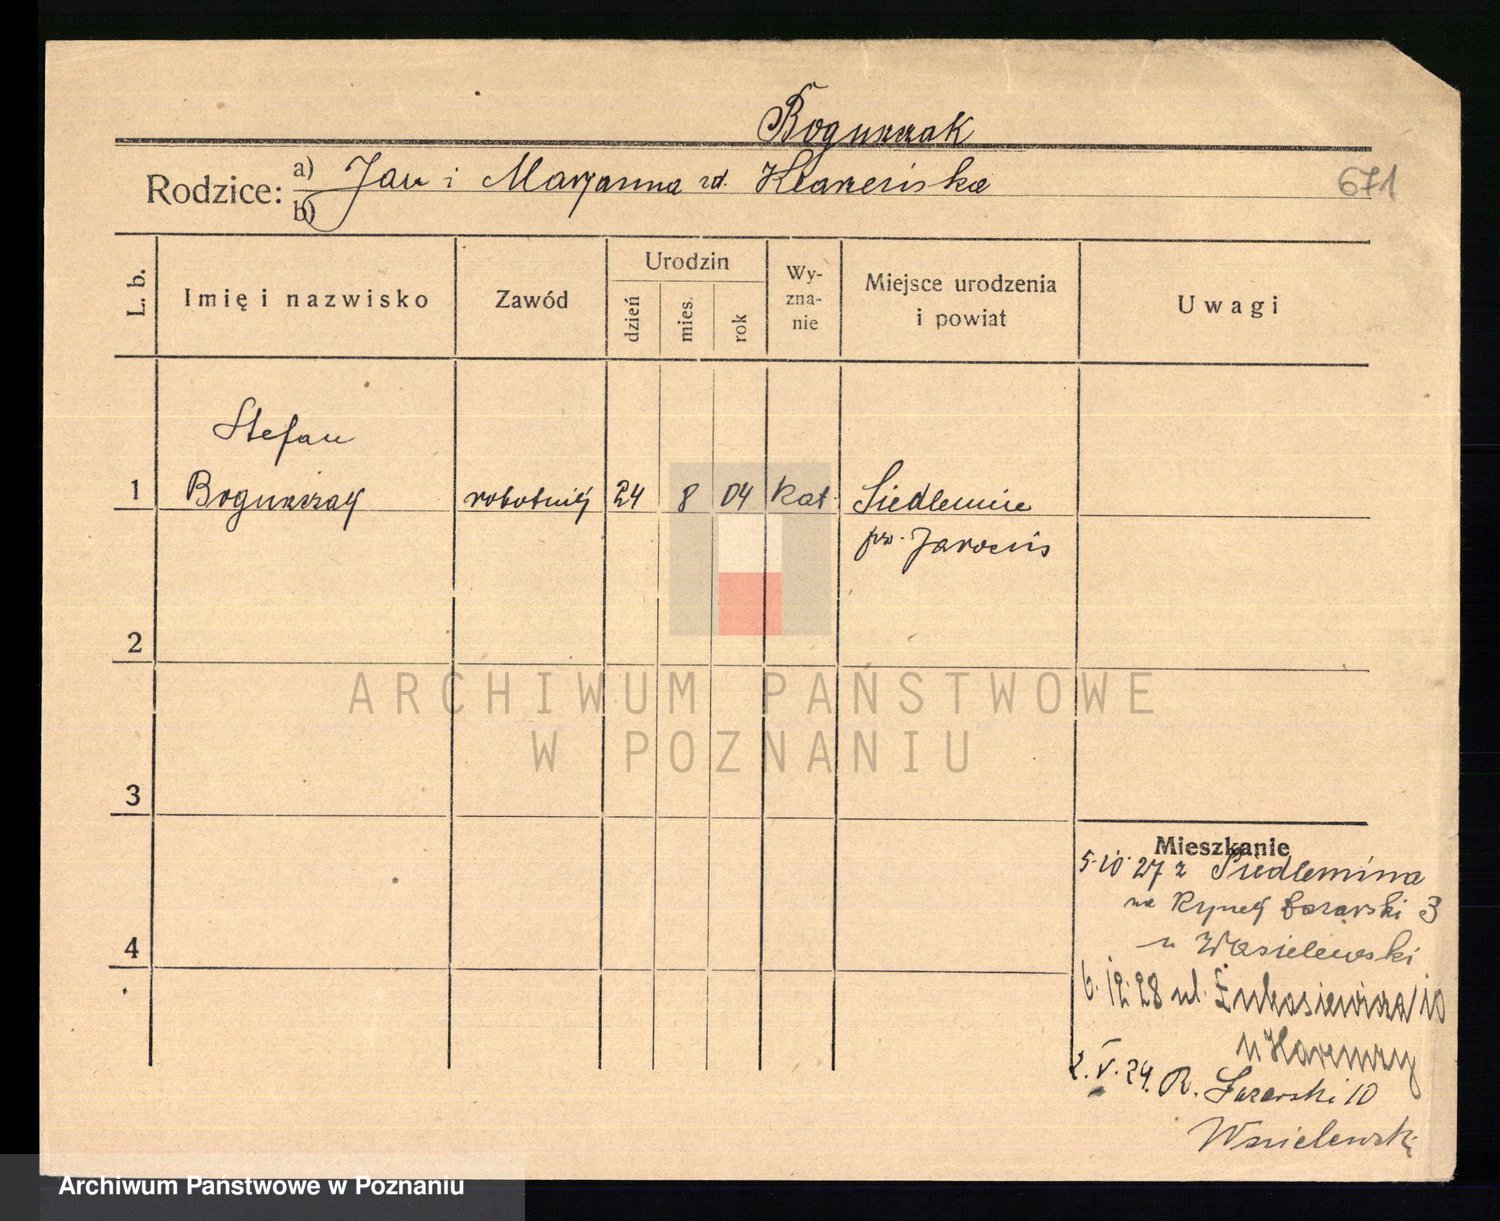 Boguszak
Rodzice: a) Jan i Maryanna zd.
b)
671
L. b.
Imię i nazwisko
Zawód
Urodzin
dzień
mies.
rok
Wy-
zna-
nie
Miejsce urodzenia
i powiat
Uwagi
Stefan
1 Boguszak robotnik 24 8 04 kat. Siedlemin
pw. Jarocin
2
3
4
ARCHIWUM PAŃSTWOWE
W POZNANIU
Mieszkanie
5.10.27 z Siedlemina
na Rynek Łazarski 3
u Wasielewski
6.12.28 ul. Łukasiewicza 10
u
2.V.29. R. Łazarski 10
Wasielewski
Archiwum Państwowe w Poznaniu